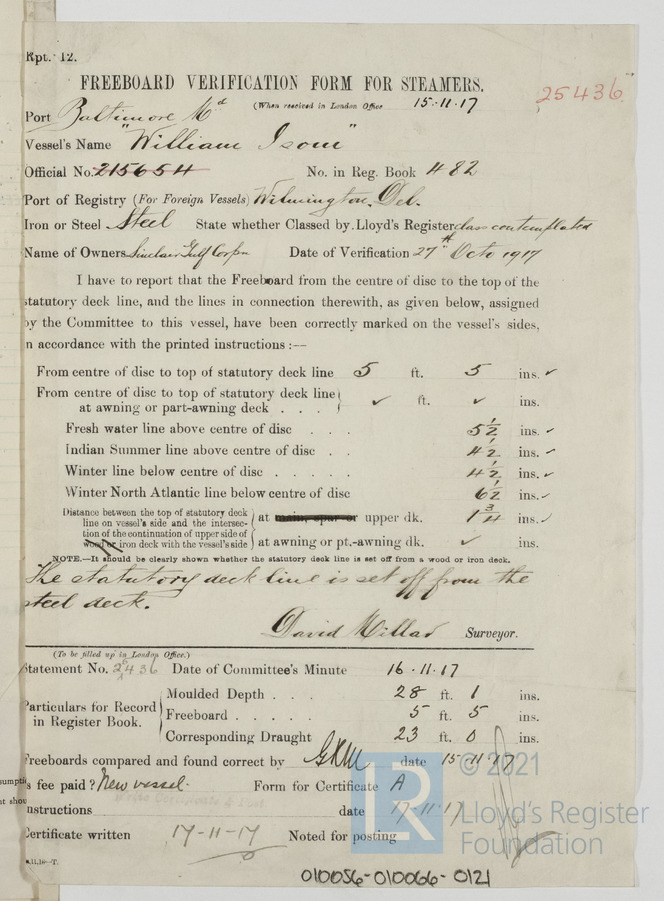 Rpt. 12.
FREEBOARD VERIFICATION FORM FOR STEAMERS.
Port Baltimore Md (When received in London Office 15·11·17 25436
Vessel's Name "William Isom"
Official No. 215654 No. in Reg. Book 482
Port of Registry (For Foreign Vessels) Wilmington, Del.
Iron or Steel Steel State whether Classed by Lloyd's Register class contemplated
Name of Owners Sinclair Gulf Corpn Date of Verification 27th Octo 1917
I have to report that the Freeboard from the centre of disc to the top of the
statutory deck line, and the lines in connection therewith, as given below, assigned
by the Committee to this vessel, have been correctly marked on the vessel's sides,
n accordance with the printed instructions :—
From centre of disc to top of statutory deck line 5 ft. 5 ins. ✓
From centre of disc to top of statutory deck line
at awning or part-awning deck . . . ✓ ft. ✓ ins.
Fresh water line above centre of disc . . . 5½ ins. ✓
Indian Summer line above centre of disc . . 4½ ins. ✓
Winter line below centre of disc . . . . . 4½ ins. ✓
Winter North Atlantic line below centre of disc 6½ ins. ✓
Distance between the top of statutory deck
line on vessel's side and the intersec-
tion of the continuation of upper side of
wood or iron deck with the vessel's side
at main, spar or upper dk. 1¾ ins. ✓
at awning or pt.-awning dk. ✓ ins.
NOTE.—It should be clearly shown whether the statutory deck line is set off from a wood or iron deck.
The statutory deck line is set off from the
steel deck.
David Millar Surveyor.
(To be filled up in London Office.)
Statement No. 25436 Date of Committee's Minute 16·11·17
Particulars for Record
in Register Book.
Moulded Depth . . . 28 ft. 1 ins.
Freeboard . . . . . 5 ft. 5 ins.
Corresponding Draught 23 ft. 0 ins.
Freeboards compared and found correct by date 15·11·17
s fee paid? New vessel. Form for Certificate A
nstructions date 17-11-17
Certificate written 17-11-17 Noted for posting
LR © 2021
Lloyd's Register
Foundation
010056-010066-0121